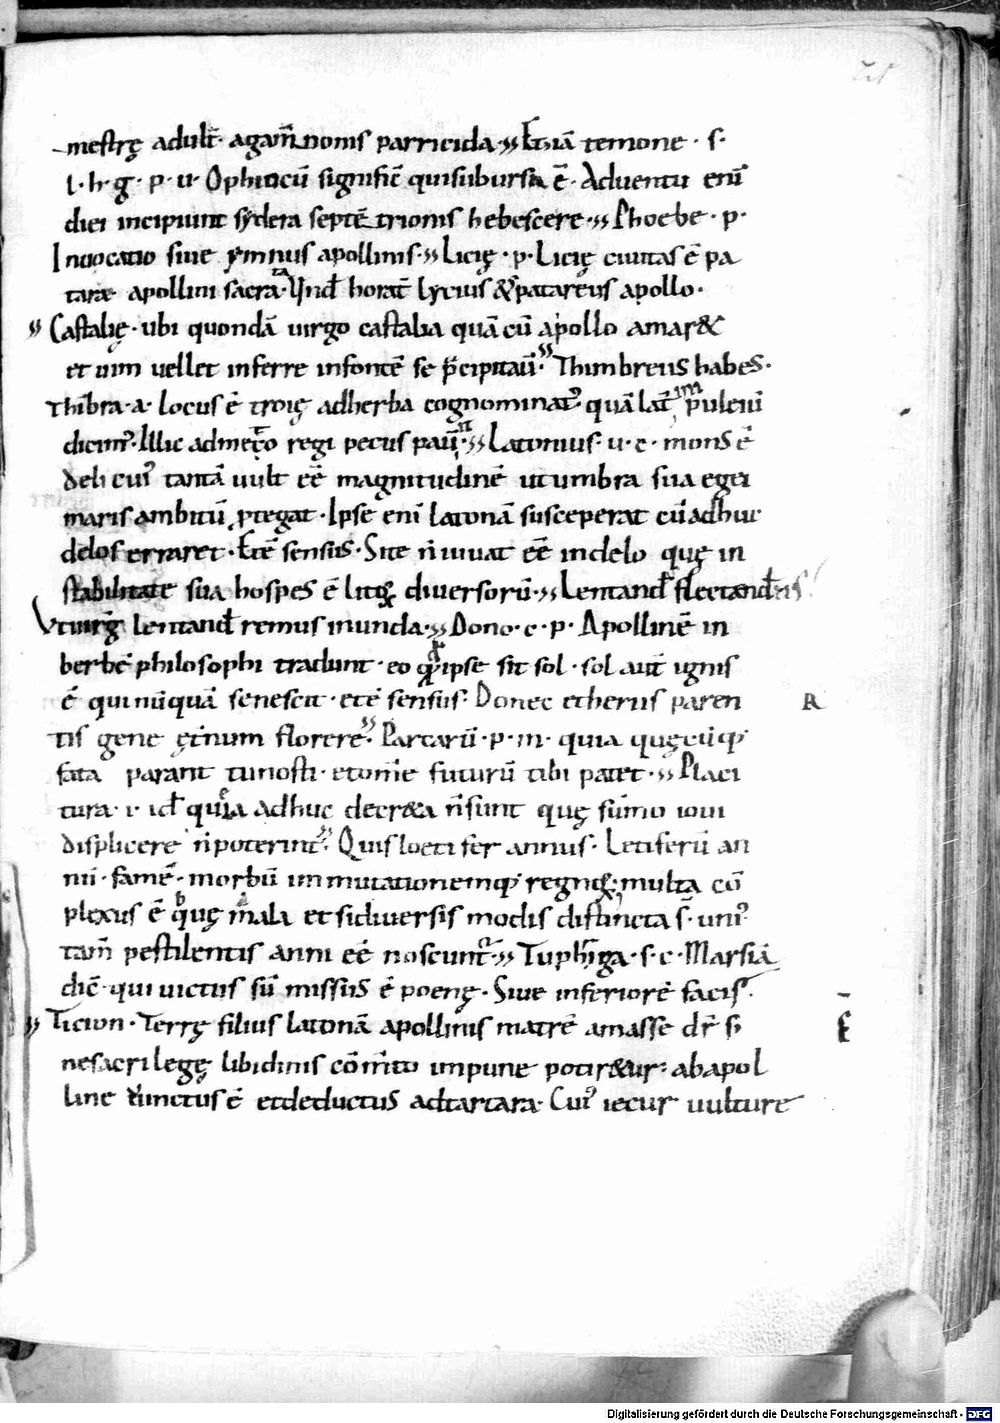 mestrę adult̄· agam̄nonis parricida·,, Etiā temone · s·
l·h·g· p·u· Ophiucū signific̄ quisubursa ē· Aduentu eni
diei incipiunt sydera septē trionis hebescere·,, Phoebe · p·
Inuocatio siue ymnus apollinis·,, Licię · p· Licię ciuitas ē pa
taræ apollini sacrata· Und̄ horat̄ lycius & patareus apollo·
,, Castalię · ubi quondā uirgo castalia quā cū apollo amar&
et uim uellet inferre infontē se p̄cipitauit·,, Thimbreus habes·
Thībra·a· locus ē troię adherba cognominat᷒ quā lat̄ p̄uleiū
dicim᷒· Illic admeto regi pecus pauit·,, Latonius· u·c· mons ē
deli cui᷒ tantā uult eē magnitudinē ut umbra sua egei
maris ambitū ꝓtegat· Ipse eni latonā susceperat cū adhuc
delos erraret· Et ē sensus· Siue n̄ uiuat eē indelo quę in
stabilitate sua hospes ē litoꝝ diuersorū·,, Lentand flectand
ut uirḡ lentand remus inunda·,, Dono·c·p· Apollinē in
berbē philosophi tradunt· eo qđ ipse sit sol· sol aut̄ ignis
ē qui nūquā senescit· et ē sensus· Donec etherus paren
R
tis gene ęt̄num florere·,, Parcarū·p·m· quia quęcūq;
fata parant tu nosti· et om̄e futurū tibi patet·,, Placi
tura·i· id quia adhuc decr&a n̄ sunt quę sūmo ioui
displicere n̄ poterint·,, Quis loeti fer annus· Letiferū an
nū· famē· morbū immutationemq; regnoꝝ· multa cō
plexus ē quę mala et sidiuersis modis distincta s̄· uni᷒
tam̄ pestilentis anni eē noscunt᷑·,, Tu phriga·s·c· Marsiā
dic̄· qui uictus sū missus ē poenę· Siue inferiorē facis·
,, Ticion· Terrę filius latonā apollinis matrē amasse dr̄ s;
nesacrilegę libidinis cōmento impune potir&ur· abapol
line uinctus ē et deductus ad tartara· Cui᷒ iecur uulture